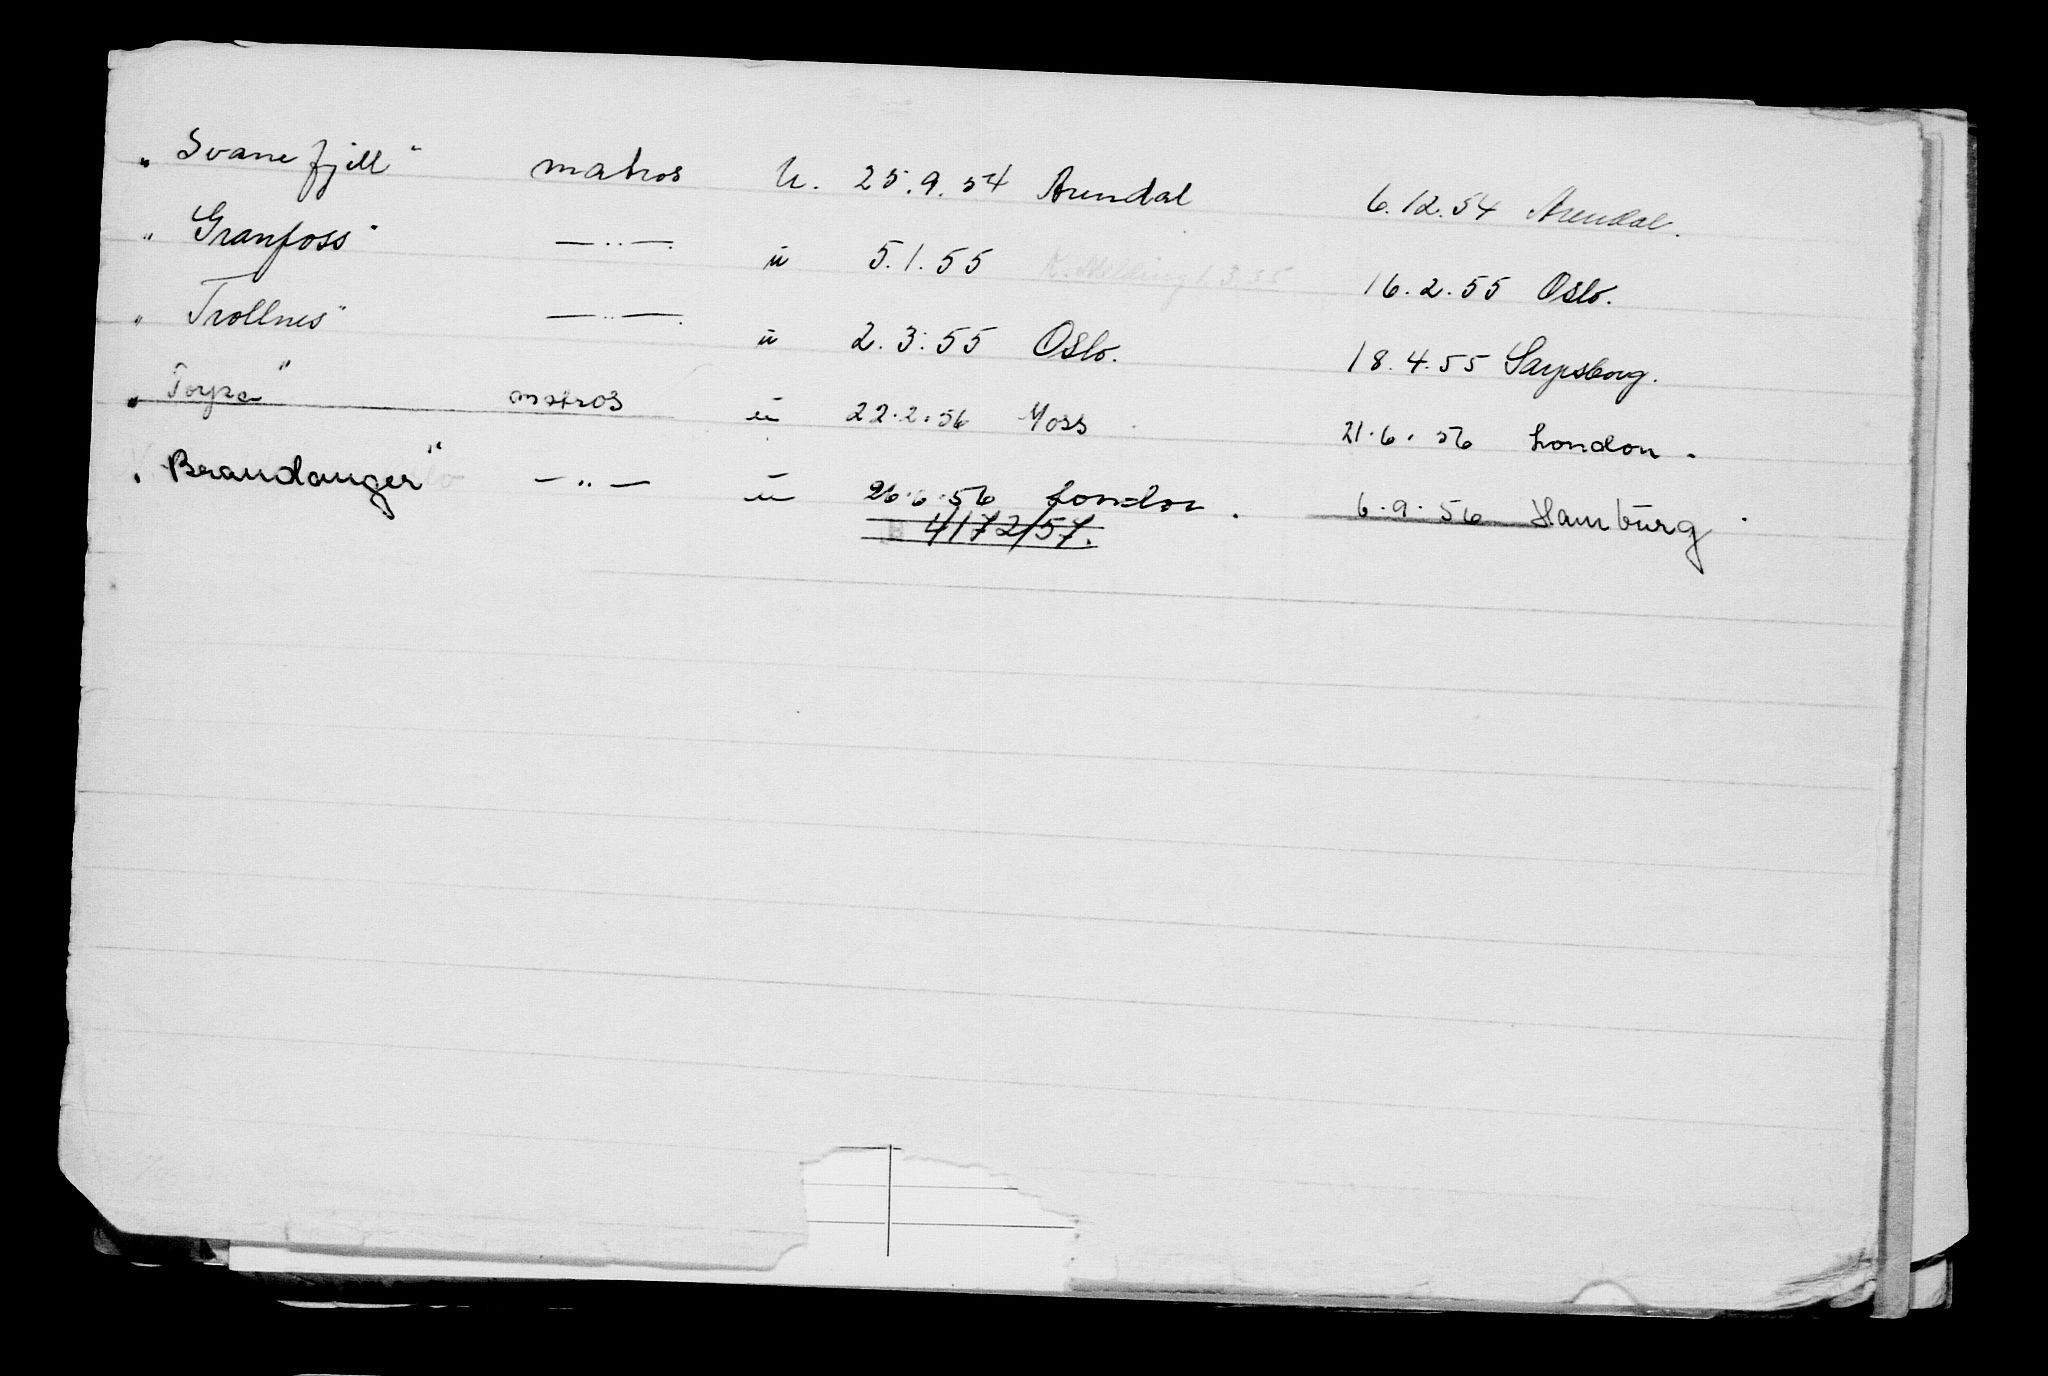 „ Svanefjell" matros U. 25.9.54 Arendal 6.12.54 Arendal.
„ Granfoss" —„— u 5.1.55 K. Melling 1.3.55 16.2.55 Oslo.
„ Trollnes" —„— u 2.3.55 Oslo. 18.4.55 Sarpsborg.
„ Torpa" matros u 22.2.56 Moss 21.6.56 London.
„ Brandanger" —„— u 26.6.56 London. 6.9.56 Hamburg.
4172/57.